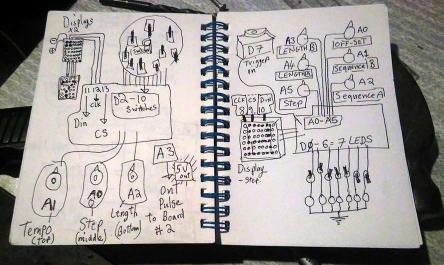 Displays
x2
Switches
11 12 13
Clk
Din
CS
D2-10
Switches
A3
5V
out
A1
A0
A2
Tempo
(top)
Step
(middle)
Length
(Bottom)
Out
Pulse
to Board
# 2
D7
Trigger
in
A3
LENGTH B
A4
LENGTH A
A5
Step
A0
OFF-SET
A1
Sequence B
A2
Sequence A
CLK CS Din
8 9 10
A0-A5
D0-6=7 LEDS
Display
-step-